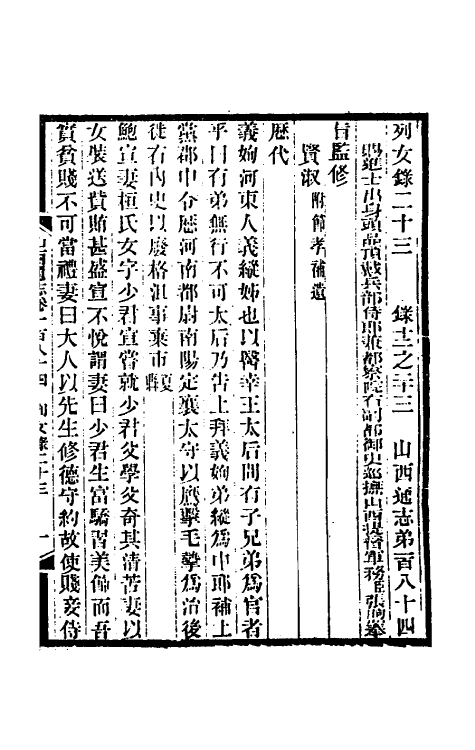 列女錄二十三 錄十二之二十三 山西通志弟百八十四
賜進士出身頭品頂戴兵部侍郎兼都察院右副都御史巡撫山西提督軍務臣張煦奉
旨監修
賢淑附節孝補遺
歷代
義姁河東人義縱姊也以醫幸王太后問有子兄弟爲官者
乎曰有弟無行不可太后乃告上拜義姁弟縱爲中郎補上
黨郡中令歷河南都尉南陽定襄太守以鷹擊毛摯爲治後
徙右內史以廢格沮事棄市
鮑宣妻桓氏女字少君宣嘗就少君父學父奇其清苦妻以
女裝送貲賄甚盛宣不悅謂妻曰少君生富驕習美飾而吾
實貧賤不可當禮妻曰大人以先生修德守約故使賤妾侍
山西通志卷一百八十四 列女錄二十三 一